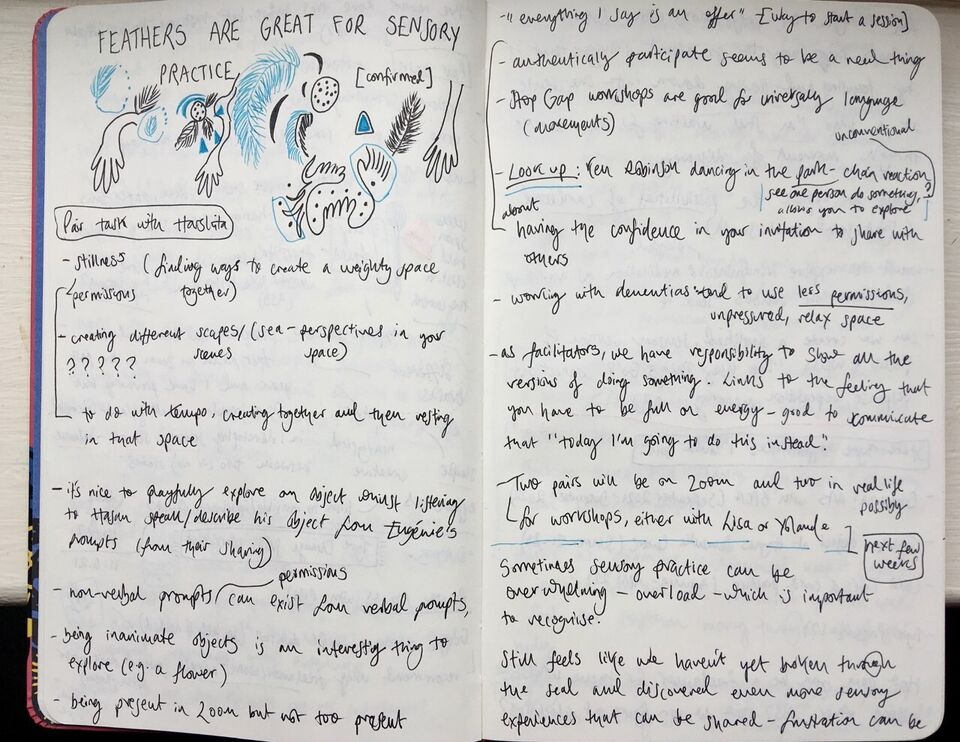 FEATHERS ARE GREAT FOR SENSORY
PRACTICE
[confirmed]
Pair task with Harslata
- stillness (finding ways to create a weighty space
together)
permissions
- creating different scapes/ (sea - perspectives in your
scenes space)
? ? ? ? ?
to do with tempo, creating together and then resting
in that space
- it's nice to playfully explore an object whilst listening
to Hasan speak/describe his object from Eugénie's
prompts (from their sharing)
permissions
- non-verbal prompts can exist from verbal prompts,
- being inanimate objects is an interesting thing to
explore (e.g. a flower)
- being present in Zoom but not too present
- "everything I say is an offer" [way to start a session]
- authentically participate seems to be a need thing
- Stop Gap workshops are good for universally language
(movements)
unconventional
- Look up: Ken Robinson dancing in the park - chain reaction
see one person do something, ?
allows you to explore
about
having the confidence in your invitation to share with
others
- working with dementias tend to use less permissions,
unpressured, relax space
- as facilitators, we have responsibility to show all the
versions of doing something. Links to the feeling that
you have to be full on energy - good to communicate
that "today I'm going to do this instead."
- Two pairs will be on Zoom and two in real life
possibly
for workshops, either with Lisa or Yolande
next few
weeks
Sometimes sensory practice can be
overwhelming - overload - which is important
to recognise.
Still feels like we haven't yet broken through
the seal and discovered even more sensory
experiences that can be shared - frustration can be